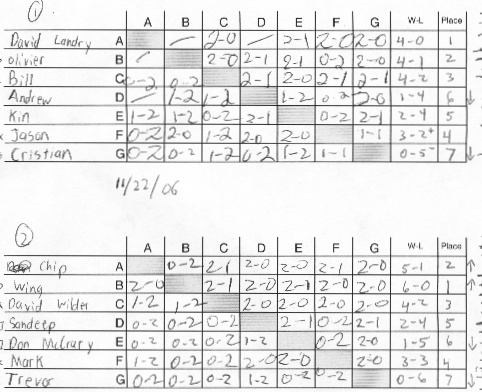 ①
A B C D E F G W-L Place
David Landry A / 2-0 / 2-1 2-0 2-0 4-0 1
olivier B / 2-0 2-1 2-1 0-2 2-0 4-1 2
Bill C 0-2 0-2 2-1 2-0 2-1 2-1 4-2 3
Andrew D / 1-2 1-2 1-2 0-2 2-0 1-4 6 ↓
Kin E 1-2 1-2 0-2 2-1 0-2 2-1 2-4 5
x Jason F 0-2 2-0 1-2 2-0 2-0 1-1 3-2+ 4
Cristian G 0-2 0-2 1-2 0-2 1-2 1-1 0-5- 7 ↓
11/22/06
②
A B C D E F G W-L Place
Chip A 0-2 2-1 2-0 2-0 2-1 2-0 5-1 2 ↑
Wing B 2-0 2-1 2-0 2-1 2-0 2-0 6-0 1 ↑
David Wilder C 1-2 1-2 2-0 2-0 2-0 2-0 4-2 3
Sandeep D 0-2 0-2 0-2 2-1 0-2 2-1 2-4 5
Don E 0-2 0-2 0-2 1-2 0-2 2-0 1-5 6 ↓
Mark F 1-2 0-2 0-2 2-0 2-0 2-0 3-3 4
Trevor G 0-2 0-2 0-2 1-2 0-2 0-2 0-6 7 ↓